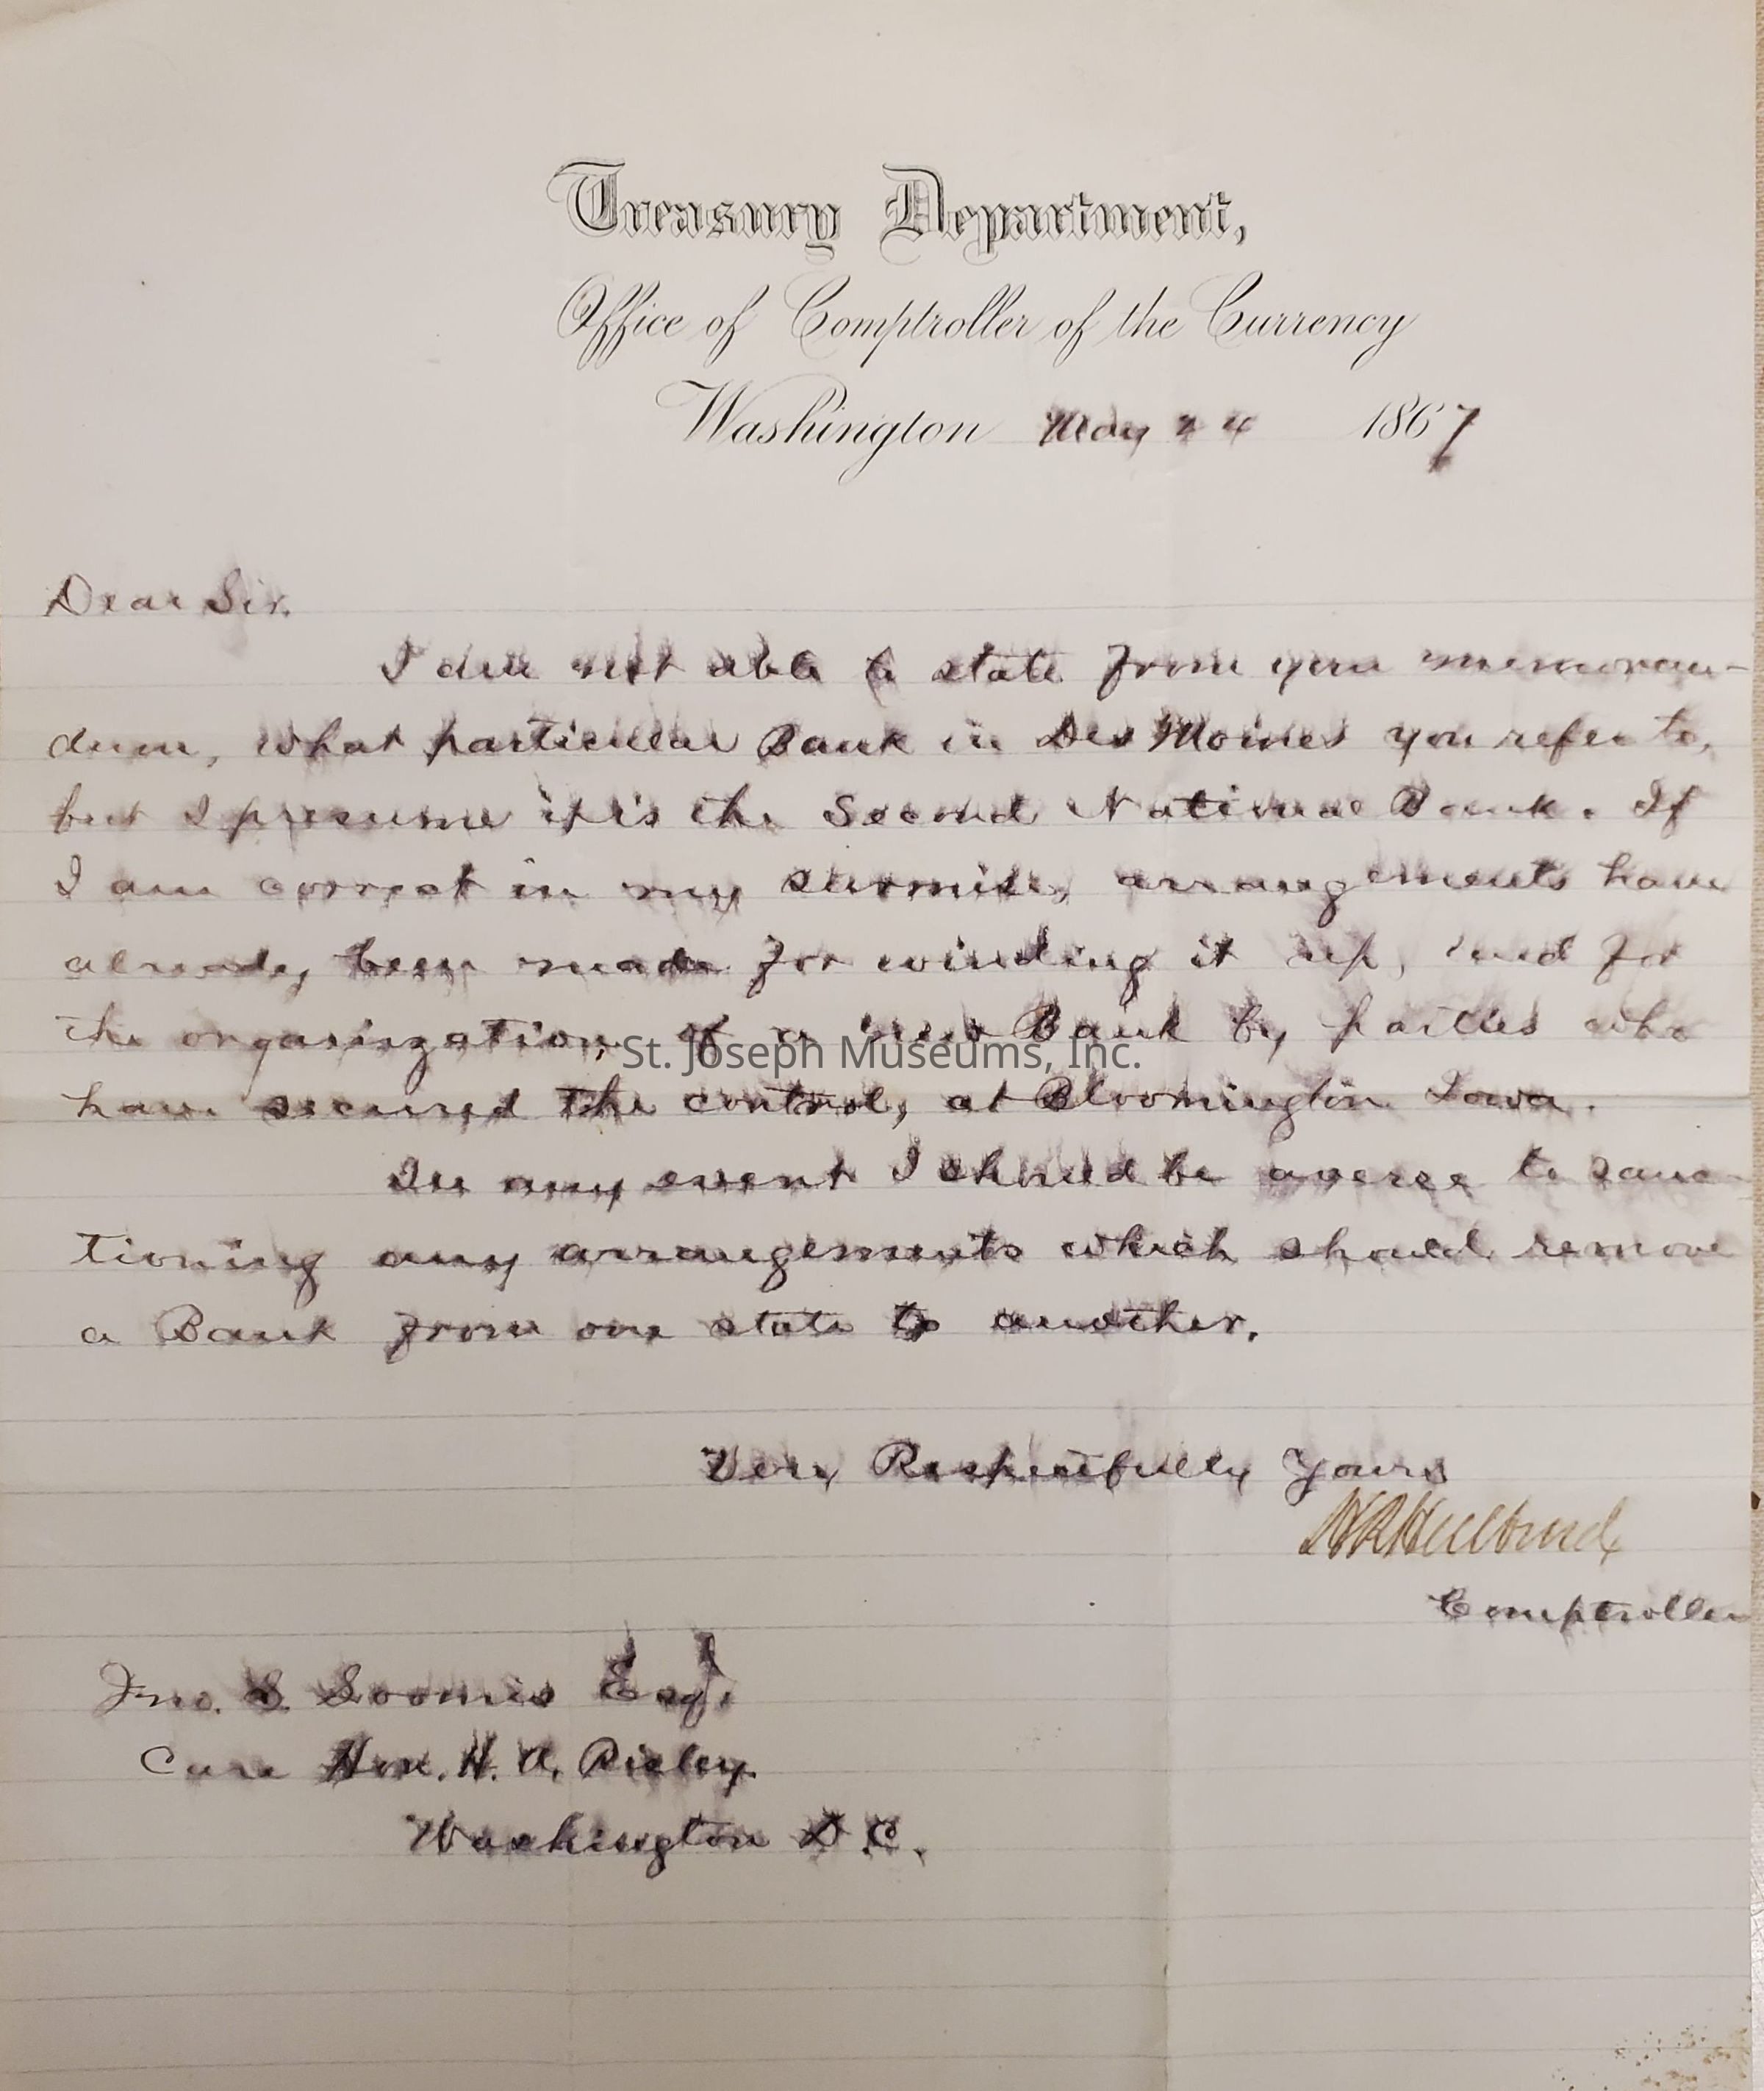 Treasury Department,
Office of Comptroller of the Currency
Washington May 24 1867
Dear Sir.
I am not able to state from your memoran-
dum, what particular Bank in Des Moines you refer to,
but I presume it is the Second National Bank. If
I am correct in my surmise, arrangements have
already been made for winding it up, and for
the organization, of a new Bank by parties who
have secured the control, at Bloomington Iowa.
In any event I should be averse to sanc-
tioning any arrangements which should remove
a Bank from one state to another.
Very Respectfully Yours
H R Hulburd
Comptroller
Jno. S. Loomis Esq.
Care Hon. H. A. Risley
Washington D.C.
St. Joseph Museums, Inc.